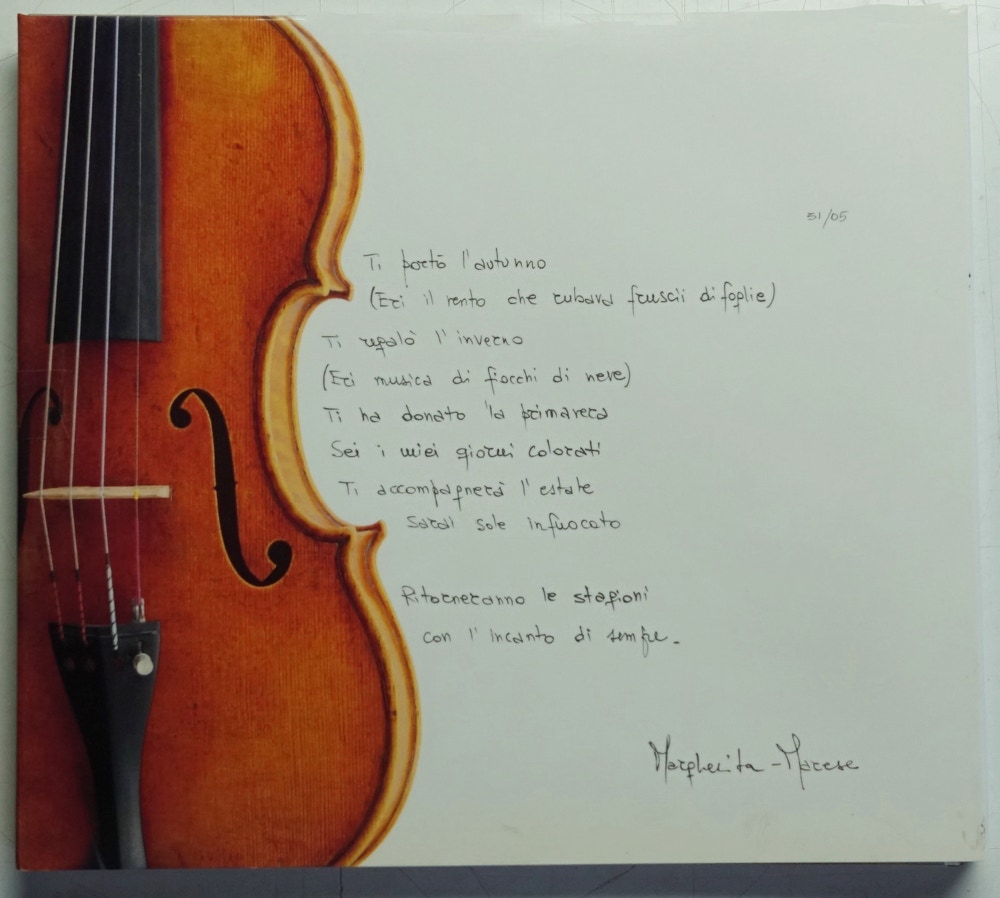 31/05
Ti portò l'autunno
(Eri il vento che rubava fruscii di foglie)
Ti regalò l'inverno
(Eri musica di fiocchi di neve)
Ti ha donato la primavera
Sei i miei giorni colorati
Ti accompagnerà l'estate
Sarai sole infuocato
Ritorneranno le stagioni
con l'incanto di sempre.
Margherita - Marese